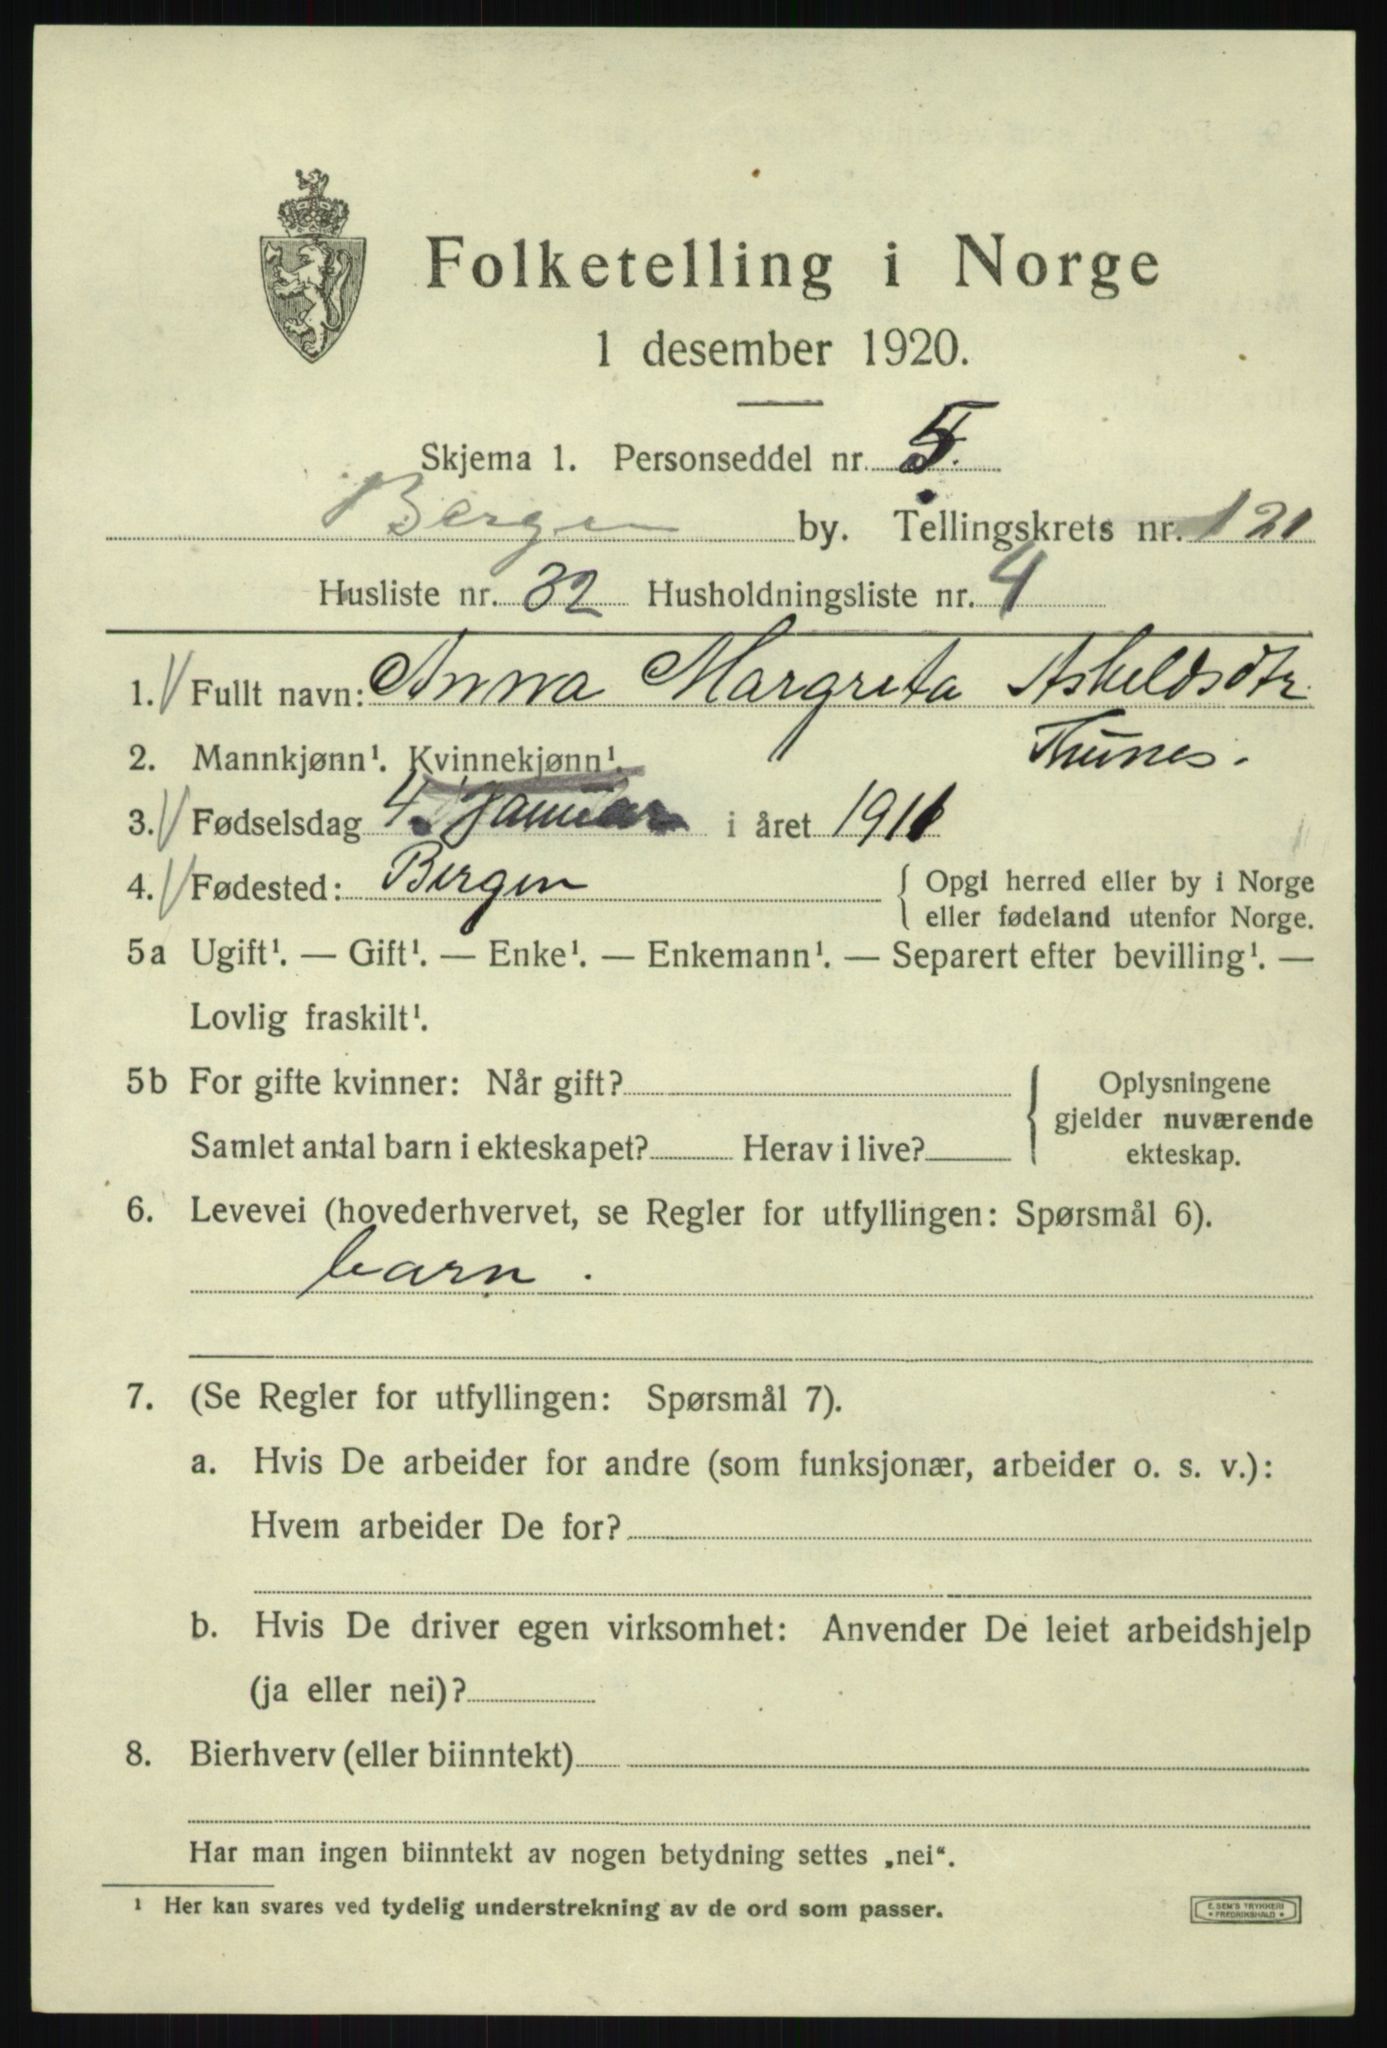 Folketelling i Norge
1 desember 1920.
Skjema 1. Personseddel nr. 5.
Bergen by. Tellingskrets nr. 121
Husliste nr. 32 Husholdningsliste nr. 4
1. Fullt navn: Anna Margreta Askeldsdtr
Thunes.
2. Mannkjønn¹. Kvinnekjønn¹.
3. Fødselsdag 4. Januar i året 1911
4. Fødested: Bergen { Opgi herred eller by i Norge
eller fødeland utenfor Norge.
5a Ugift¹. — Gift¹. — Enke¹. — Enkemann¹. — Separert efter bevilling¹. —
Lovlig fraskilt¹.
5b For gifte kvinner: Når gift? { Oplysningene
gjelder nuværende
Samlet antal barn i ekteskapet? Herav i live? ekteskap.
6. Levevei (hovederhvervet, se Regler for utfyllingen: Spørsmål 6).
barn.
7. (Se Regler for utfyllingen: Spørsmål 7).
a. Hvis De arbeider for andre (som funksjonær, arbeider o. s. v.):
Hvem arbeider De for?
b. Hvis De driver egen virksomhet: Anvender De leiet arbeidshjelp
(ja eller nei)?
8. Bierhverv (eller biinntekt)
Har man ingen biinntekt av nogen betydning settes „nei“.
¹ Her kan svares ved tydelig understrekning av de ord som passer.
E. SEM'S TRYKKERI
* FREDRIKSHALD *